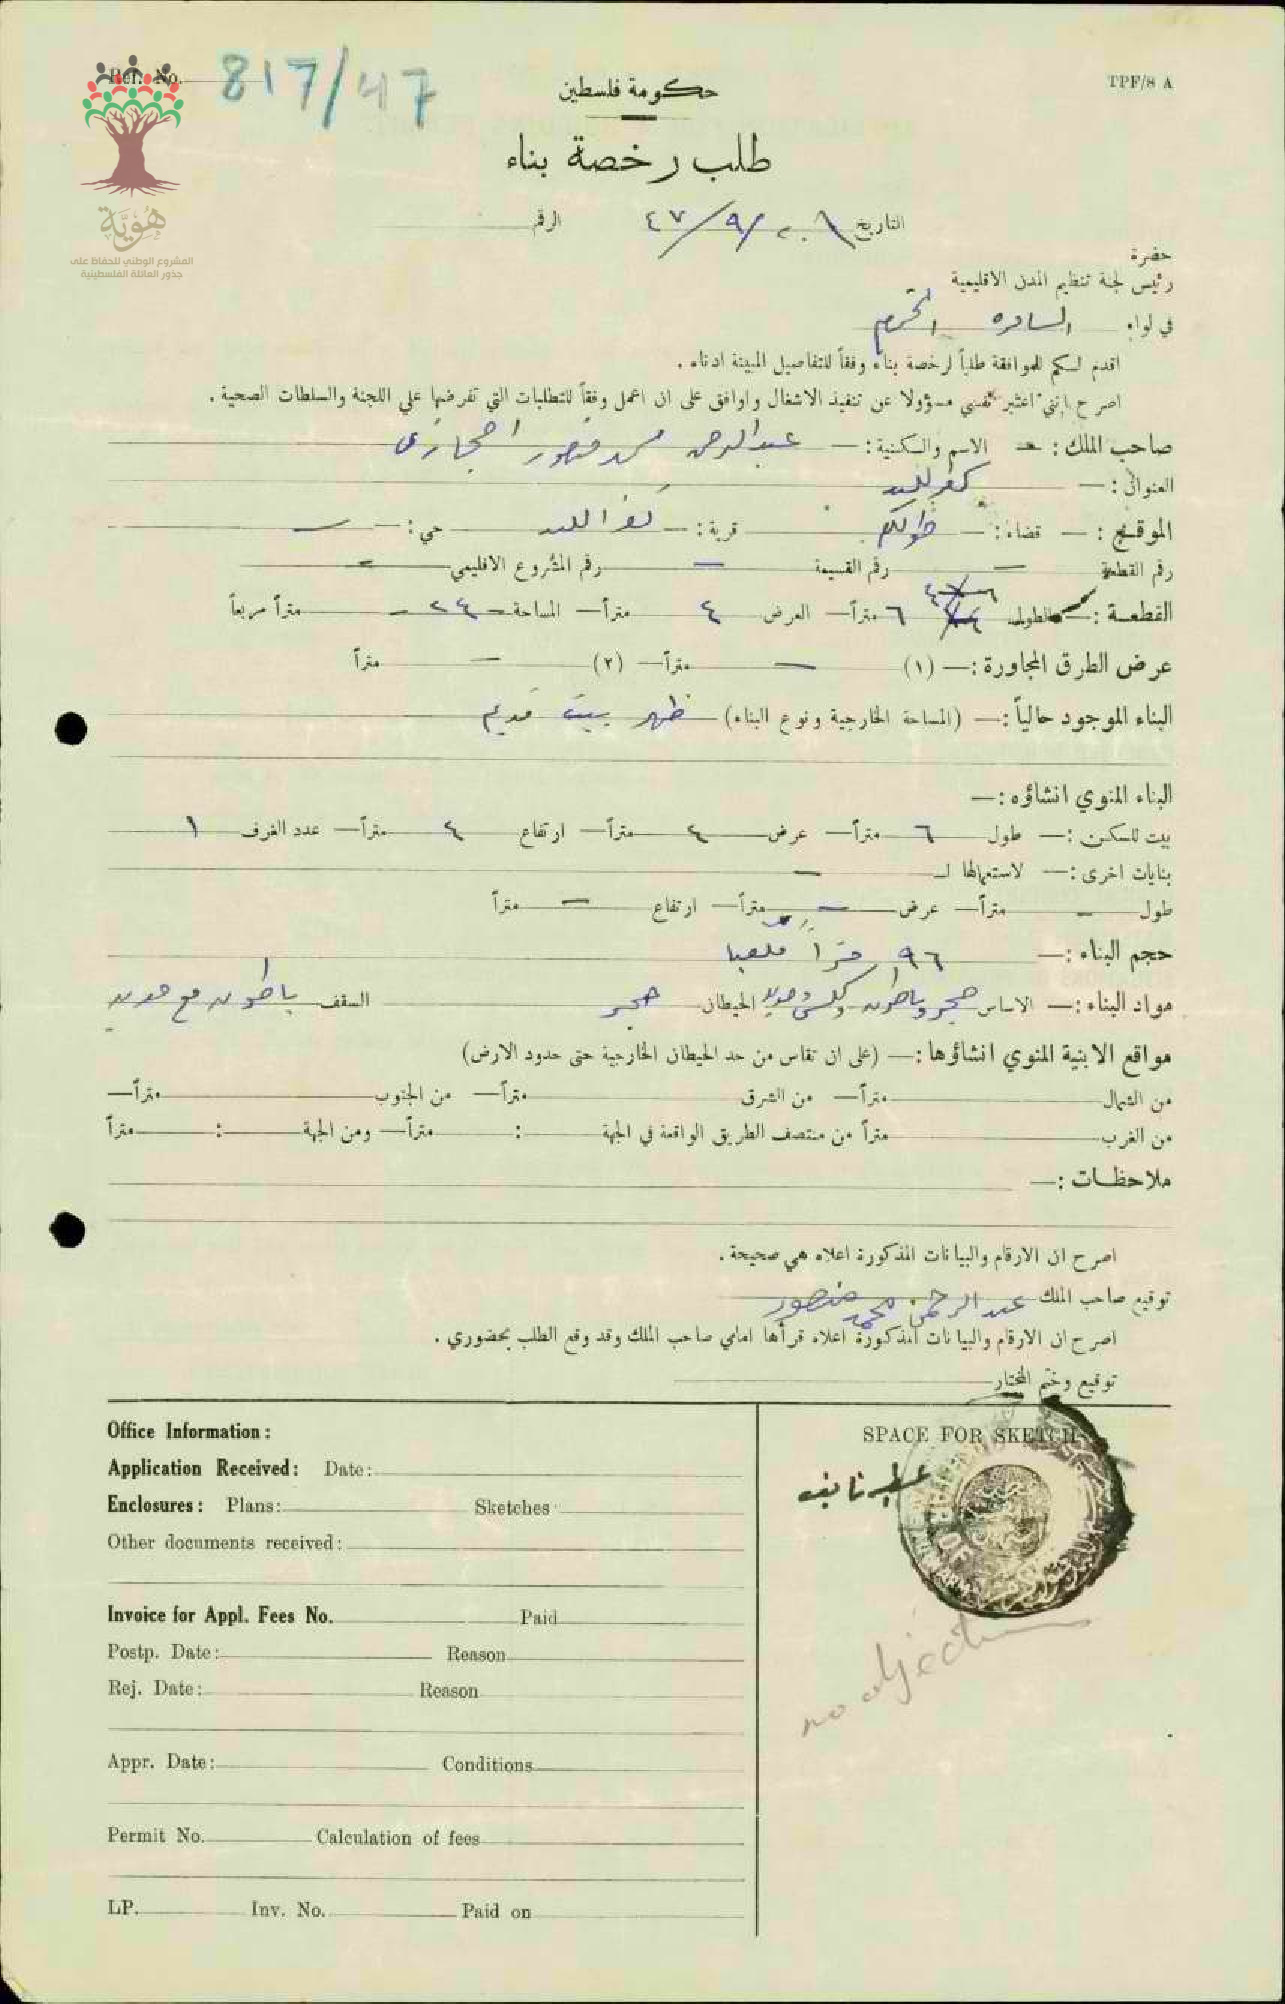 Ref. No. 817/47
TPF/8 A
هُوِيَّة
المشروع الوطني للحفاظ على
جذور العائلة الفلسطينية
حكومة فلسطين
طلب رخصة بناء
التاريخ ٤٧/٩/ الرقم
حضرة
رئيس لجنة تنظيم المدن الاقليمية
في لواء السامره المحترم
اقدم لكم للموافقة طلباً لرخصة بناء وفقاً للتفاصيل المبينة ادناه .
اصرح بانني اعتبر نفسي مسؤولا عن تنفيذ الاشغال واوافق على ان اعمل وفقاً للمتطلبات التي تفرضها علي اللجنة والسلطات الصحية .
صاحب الملك : — الاسم والكنية : — عبدالرحمن محمد منصور الحجازي
العنوان : — كفر اللبد
الموقع : — قضاء : — طولكرم قرية : — كفر اللبد حي : — —
رقم القطعة — رقم القسيمة — رقم المشروع الاقليمي —
القطعة : — الطول ٦ متراً — العرض ٤ متراً — المساحة ٢٤ متراً مربعاً
عرض الطرق المجاورة : — (١) — متراً — (٢) — متراً
البناء الموجود حالياً : — (المساحة الخارجية ونوع البناء) ظهر بيت قديم
البناء المنوي انشاؤه : —
بيت للسكن : — طول ٦ متراً — عرض ٤ متراً — ارتفاع ٤ متراً — عدد الغرف ١
بنايات اخرى : — لاستعمالها لـ —
طول — متراً — عرض — متراً — ارتفاع — متراً
حجم البناء : — ٩٦ متراً مكعبا
مواد البناء : — الاساس حجر وباطون وكلس وحديد الحيطان حجر السقف باطون مع حديد
مواقع الابنية المنوي انشاؤها : — (على ان تقاس من حد الحيطان الخارجية حتى حدود الارض)
من الشمال متراً — من الشرق متراً — من الجنوب متراً —
من الغرب متراً من منتصف الطريق الواقعة في الجهة : متراً — ومن الجهة : متراً
ملاحظات : —
اصرح ان الارقام والبيانات المذكورة اعلاه هي صحيحة .
توقيع صاحب الملك عبد الرحمن محمد منصور
اصرح ان الارقام والبيانات المذكورة اعلاه قرأها امامي صاحب الملك وقد وقع الطلب بحضوري .
توقيع وختم المختار
Office Information :
Application Received : Date :
Enclosures : Plans : Sketches
Other documents received :
Invoice for Appl. Fees No. Paid
Postp. Date : Reason
Rej. Date : Reason
Appr. Date : Conditions
Permit No. Calculation of fees
LP. Inv. No. Paid on
SPACE FOR SKETCH
no objection